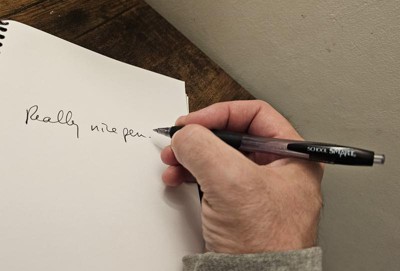 Really nice pen.
SCHOOL SMART